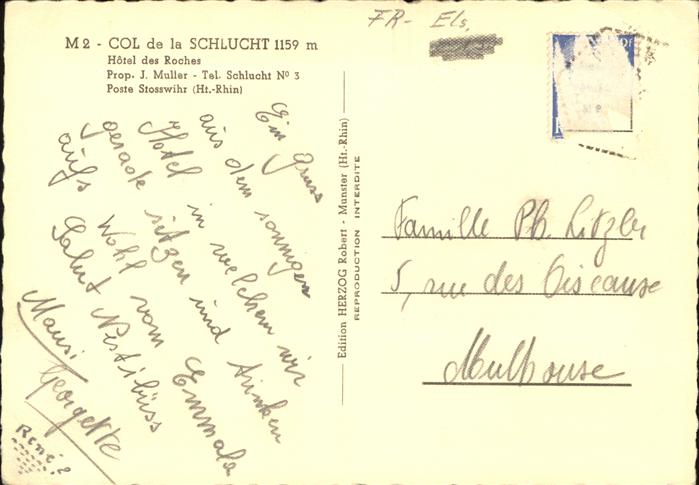 FR - Els.
M 2 - COL de la SCHLUCHT 1159 m
Hôtel des Roches
Prop. J. Muller - Tel. Schlucht Nº 3
Poste Stosswihr (Ht.-Rhin)
Ein Gruss
aus dem sonnigen
Hotel in welchem wir
gerade sitzen und trinken
aufs Wohl vom Emmala
Salut Nestibüss
Mausi
Georgette
René
Edition HERZOG Robert - Munster (Ht.-Rhin)
REPRODUCTION INTERDITE
Famille Ph. Litzler
5, rue des Oiseause
Mulhouse